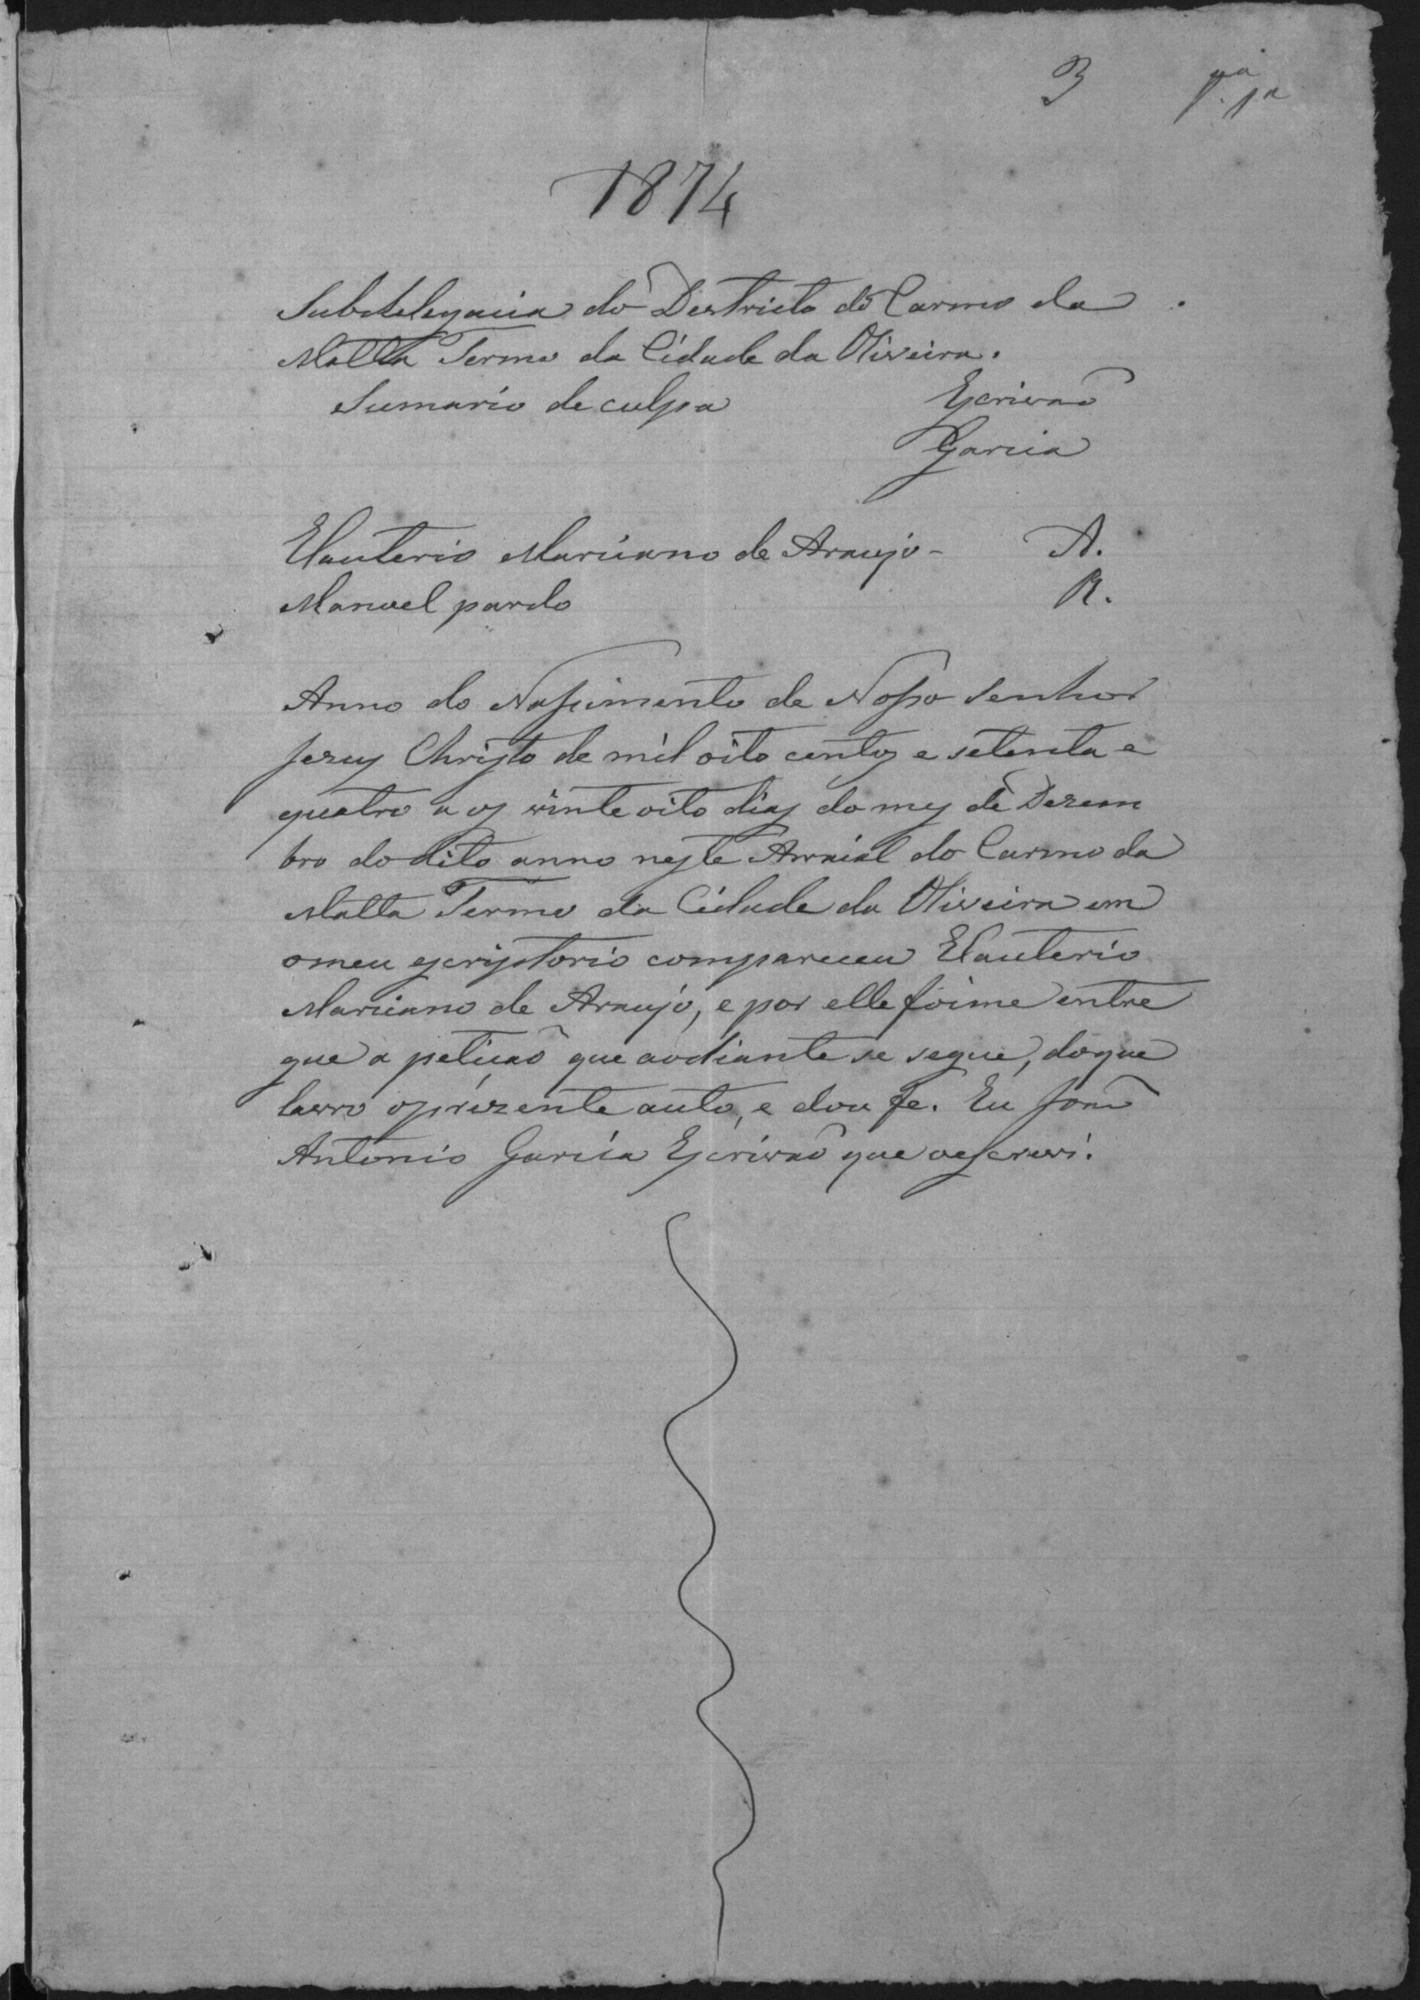 3
1874
Subdelegacia do Destricto do Carmo da
Matta Termo da Cidade da Oliveira.
Sumario de culpa Escrivaõ
Garcia
Elauterio Marciano de Araujo - A.
Manoel pardo R.
Anno do Nassimento de Nosso Senhor
Jezus Christo de mil oito centos e setenta e
quatro a os vinte oito dias do mes de Dezem
bro do dito anno neste Arraial do Carmo da
Matta Termo da Cidade da Oliveira em
o meu escriptorio compareceu Elauterio
Marciano de Araujo, e por elle foi me entre
gue a petiçaõ que aodiante se segue, do que
lavro o prezente auto, e dou fe. Eu Joaõ
Antonio Garcia Escrivaõ que o escrevi.